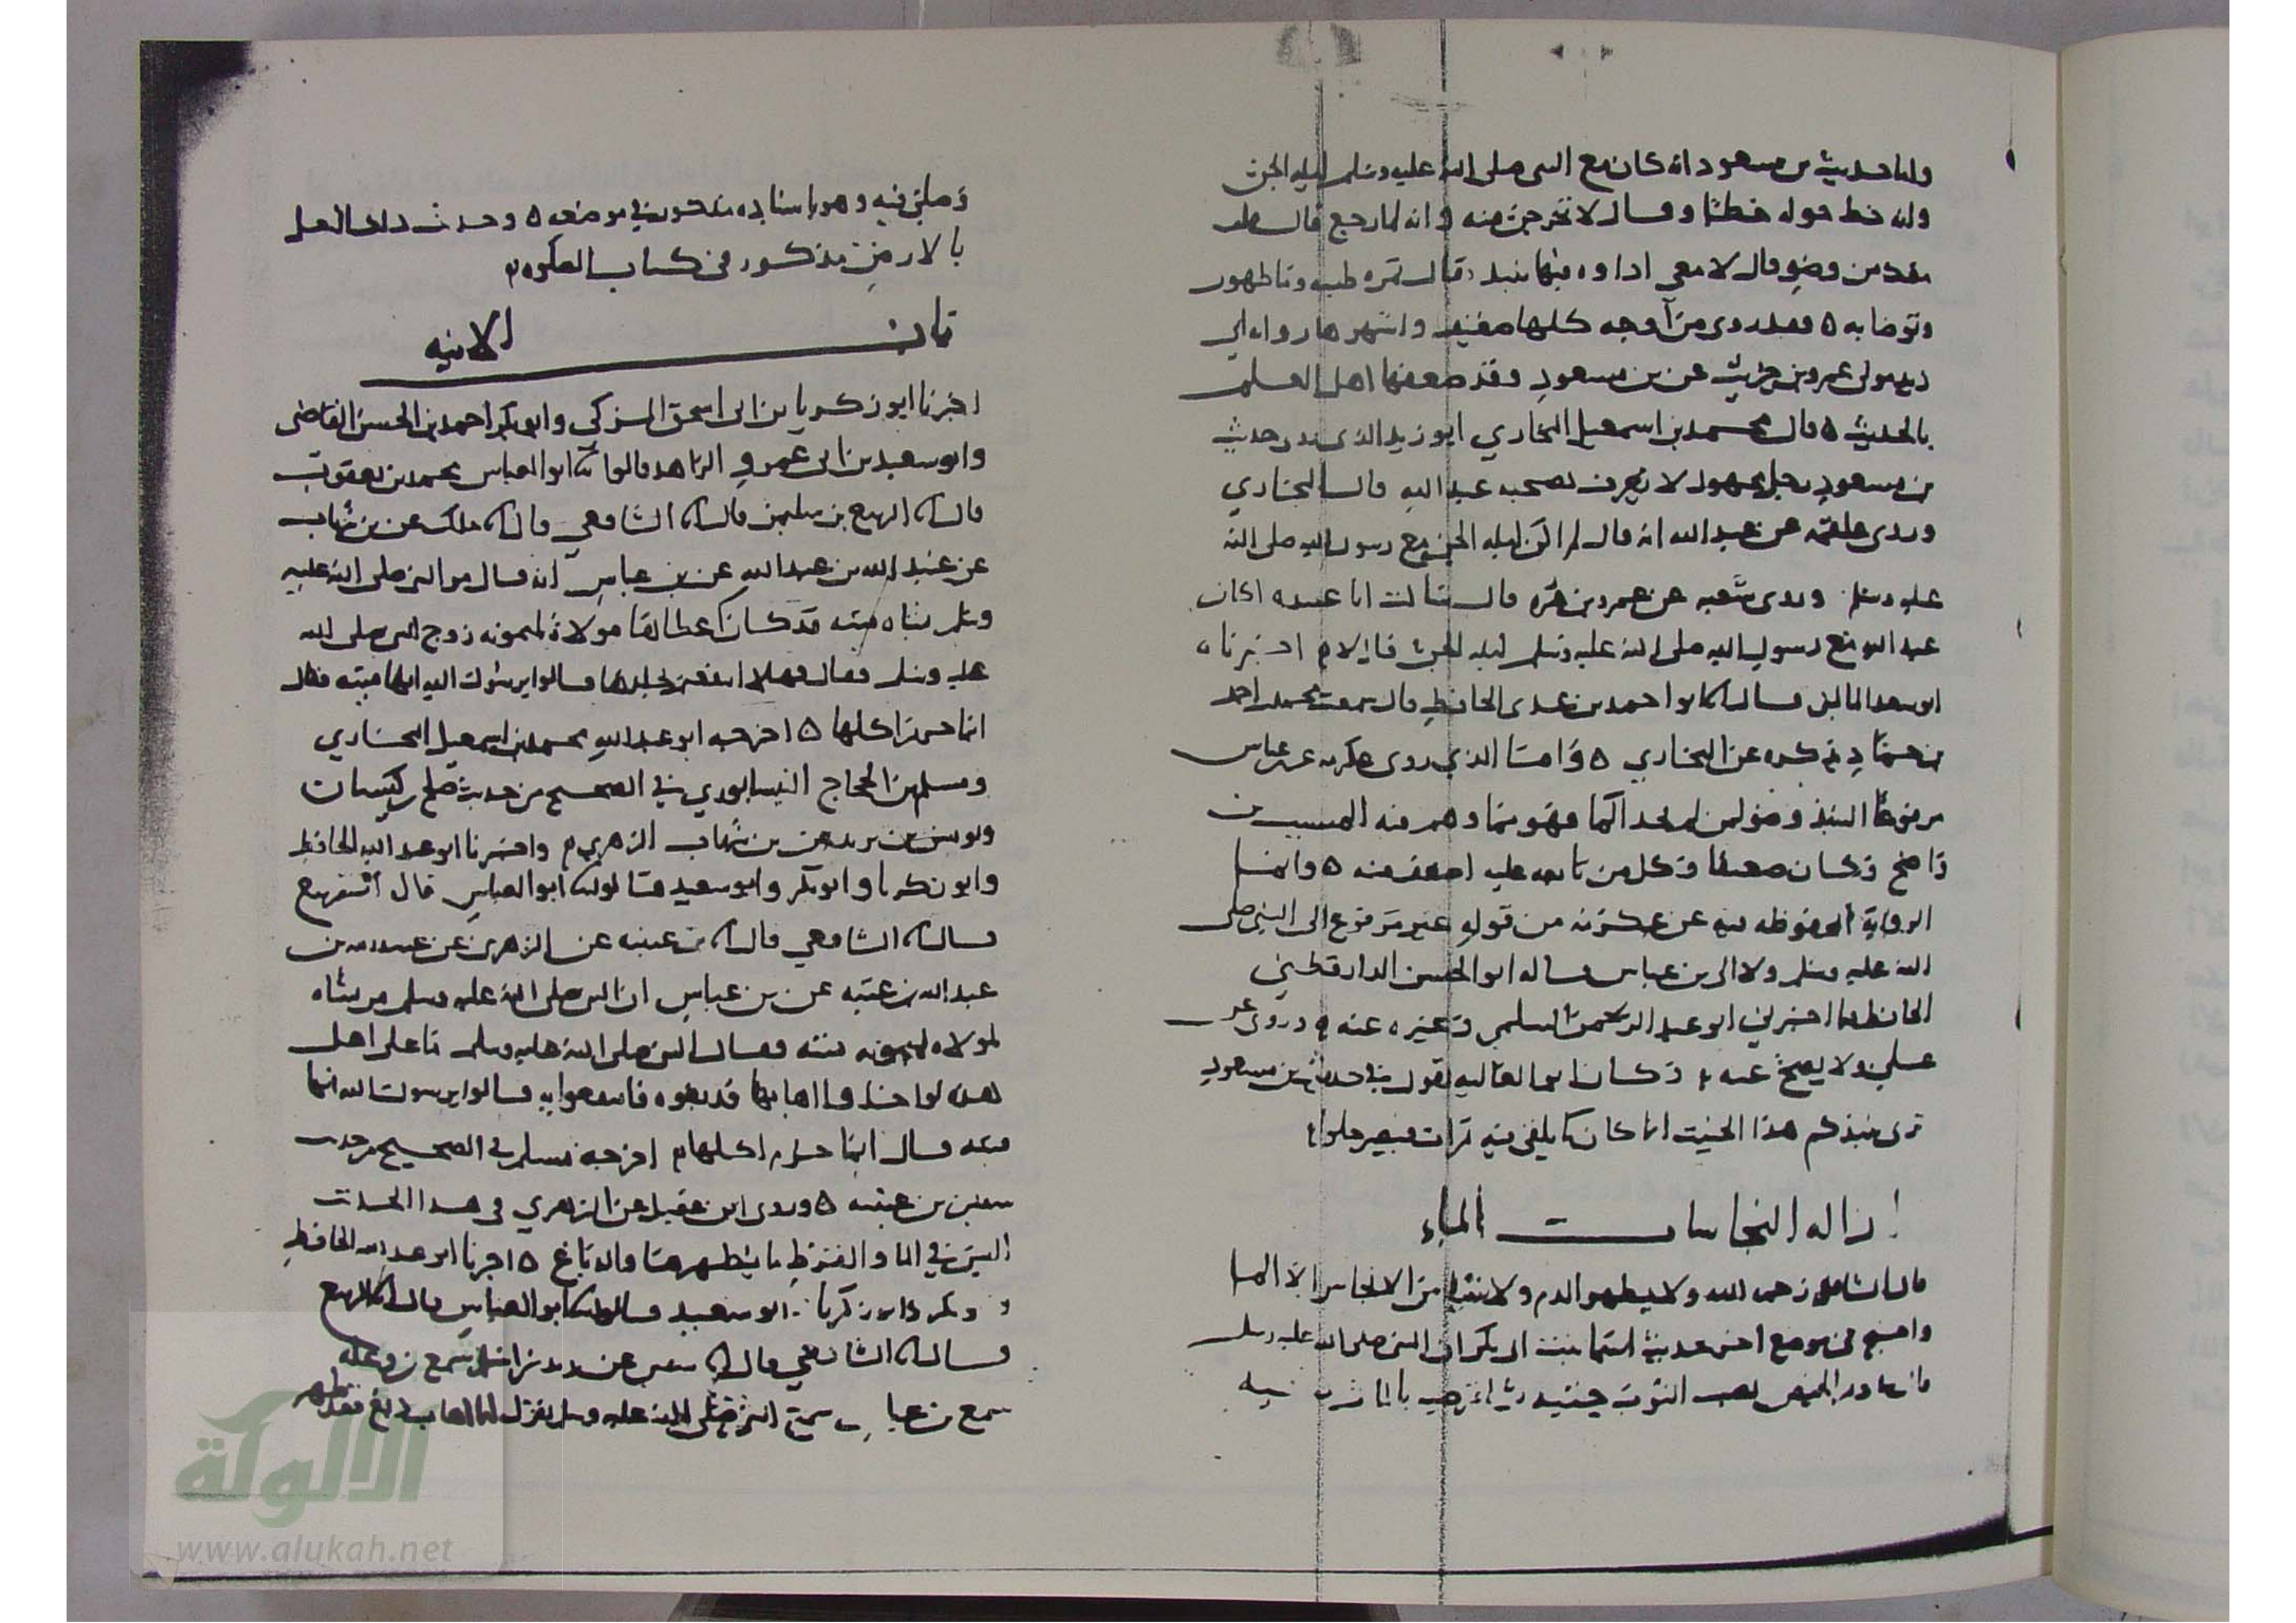 واما حديث بن مسعود انه كان مع النبي صلى الله عليه وسلم ليله الجن
وانه خط حوله خطا وقال لا تخرجن منه وانه لما رجع قال هل
معك من وضو قال لا معي اداوه فيها نبيذ فقال تمره طيبه وما طهور
وتوضا به ه فقد روى من اوجه كلها ضعيفه واشهرها روايه ابي
زيد مولى عمرو بن حريث عن بن مسعود وقد ضعفها اهل العلم
بالحديث ه قال محمد بن اسمعيل البخاري ابو زيد الذي روى حديث
بن مسعود رجل مجهول لا يعرف بصحبه عبد الله قال البخاري
وروى علقمه عن عبد الله انه قال لم اكن ليله الجن مع رسول الله صلى الله
عليه وسلم وروى شعبه عن عمرو بن مره قال سالت ابا عبيده اكان
عبد الله مع رسول الله صلى الله عليه وسلم ليله الجن قال لا اخبرناه
ابو سعد الماليني قال ابو احمد بن عدي الحافظ قال سمعت محمد بن احمد
بن حماد يذكره عن البخاري ه واما الذي روى عكرمه عن بن عباس
مرفوعا النبيذ وضو لمن لم يجد الما فهو مما وهم فيه المسيب بن
واضح وكان ضعيفا وكل من تابعه عليه اضعف منه ه وانما
الروايه المحفوظه فيه عن عكرمه من قوله غير مرفوع الى النبي صلى
الله عليه وسلم ولا الى بن عباس قاله ابو الحسن الدارقطني
الحافظ فيما اخبرني ابو عبد الرحمن السلمي وغيره عنه وروى عن
علي ولا يصح عنه وكان ابو العاليه يقول في حديث بن مسعود
ترى نبيذكم هذا الخبيث انما كان ما يلقى فيه تمرات فيصير حلوا
ازاله النجاسات بالماء
قال الشافعي رحمه الله ولا يطهر الدم ولا شيا من الانجاس الا الما
واحتج في موضع اخر بحديث اسما بنت ابي بكر ان النبي صلى الله عليه وسلم
قال في دم الحيض يصيب الثوب حتيه ثم اقرصيه بالما ثم رشيه
وصلي فيه وهو باسناده مذكور في موضعه ه وحديث دلك النعل
بالارض مذكور في كتاب الصلوه
باب الانيه
اخبرنا ابو زكريا بن ابي اسحق المزكي وابو بكر احمد بن الحسن القاضي
وابو سعيد بن ابي عمرو الزاهد قالوا ابو العباس محمد بن يعقوب
قال الربيع بن سليمن قال الشافعي قال ملك عن بن شهاب
عن عبيد الله بن عبد الله عن بن عباس انه قال مر النبي صلى الله عليه
وسلم بشاه ميته قد كان اعطاها مولاة لميمونه زوج النبي صلى الله
عليه وسلم فقال فهلا انتفعتم بجلدها قالوا يرسول الله انها ميته فقال
انما حرم اكلها ه اخرجه ابو عبد الله محمد بن اسمعيل البخاري
ومسلم بن الحجاج النيسابوري في الصحيح من حديث صلح بن كيسان
ويونس بن يزيد عن بن شهاب الزهري واخبرنا ابو عبد الله الحافظ
وابو زكريا وابو بكر وابو سعيد قالوا ابو العباس قال الربيع
قال الشافعي قال بن عيينه عن الزهري عن عبيد الله بن
عبد الله بن عتبه عن بن عباس ان النبي صلى الله عليه وسلم مر بشاه
لمولاه لميمونه ميته فقال النبي صلى الله عليه وسلم ما على اهل
هذه لو اخذوا اهابها فدبغوه فانتفعوا به قالوا يرسول الله انها
ميته قال انما حرم اكلها اخرجه مسلم في الصحيح من حديث
سفين بن عيينه ه وروى ابن عقيل عن الزهري في هذا الحديث
اليس في الما والقرظ ما يطهرها والدباغ ه اخبرنا ابو عبد الله الحافظ
وابو بكر وابو زكريا وابو سعيد قالوا ابو العباس قال الربيع
قال الشافعي قال سفين عن زيد بن اسلم سمع بن وعله
سمع بن عباس سمع النبي صلى الله عليه وسلم يقول ايما اهاب دبغ فقد طهر
الألوكة
www.alukah.net